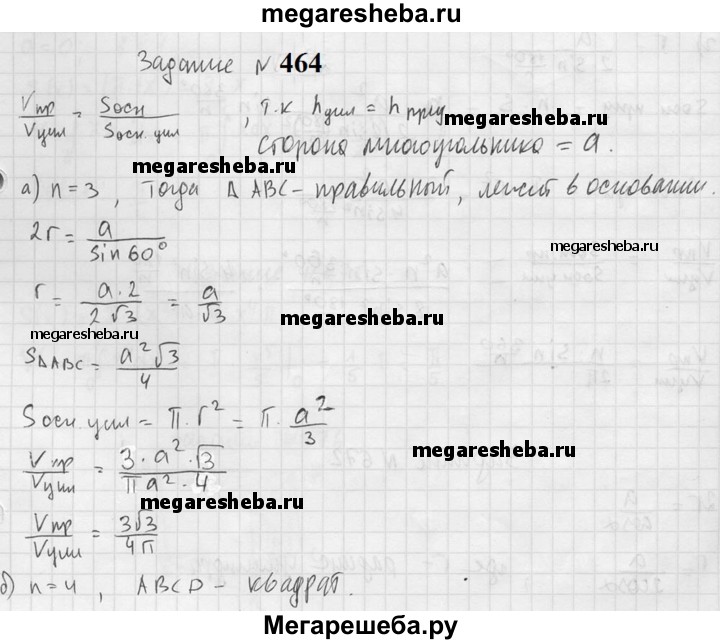 megaresheba.ru
Задание № 464
Vпр/Vцил = Sосн/Sосн. цил , т.к hцил = hпризм
megaresheba.ru
сторона многоугольника = a.
megaresheba.ru
а) n = 3 , тогда Δ ABC - правильный, лежит в основании.
2r = a/sin60°
megaresheba.ru
r = a·2/2√3 = a/√3
megaresheba.ru
megaresheba.ru
SΔABC = a²√3/4
Sосн цил = π·r² = π·a²/3
Vпр/Vцил = 3·a²·√3/πa²·4
megaresheba.ru
megaresheba.ru
Vпр/Vцил = 3√3/4π
б) n = 4 , ABCD - квадрат.
megaresheba.ru
Мегарешеба.ру